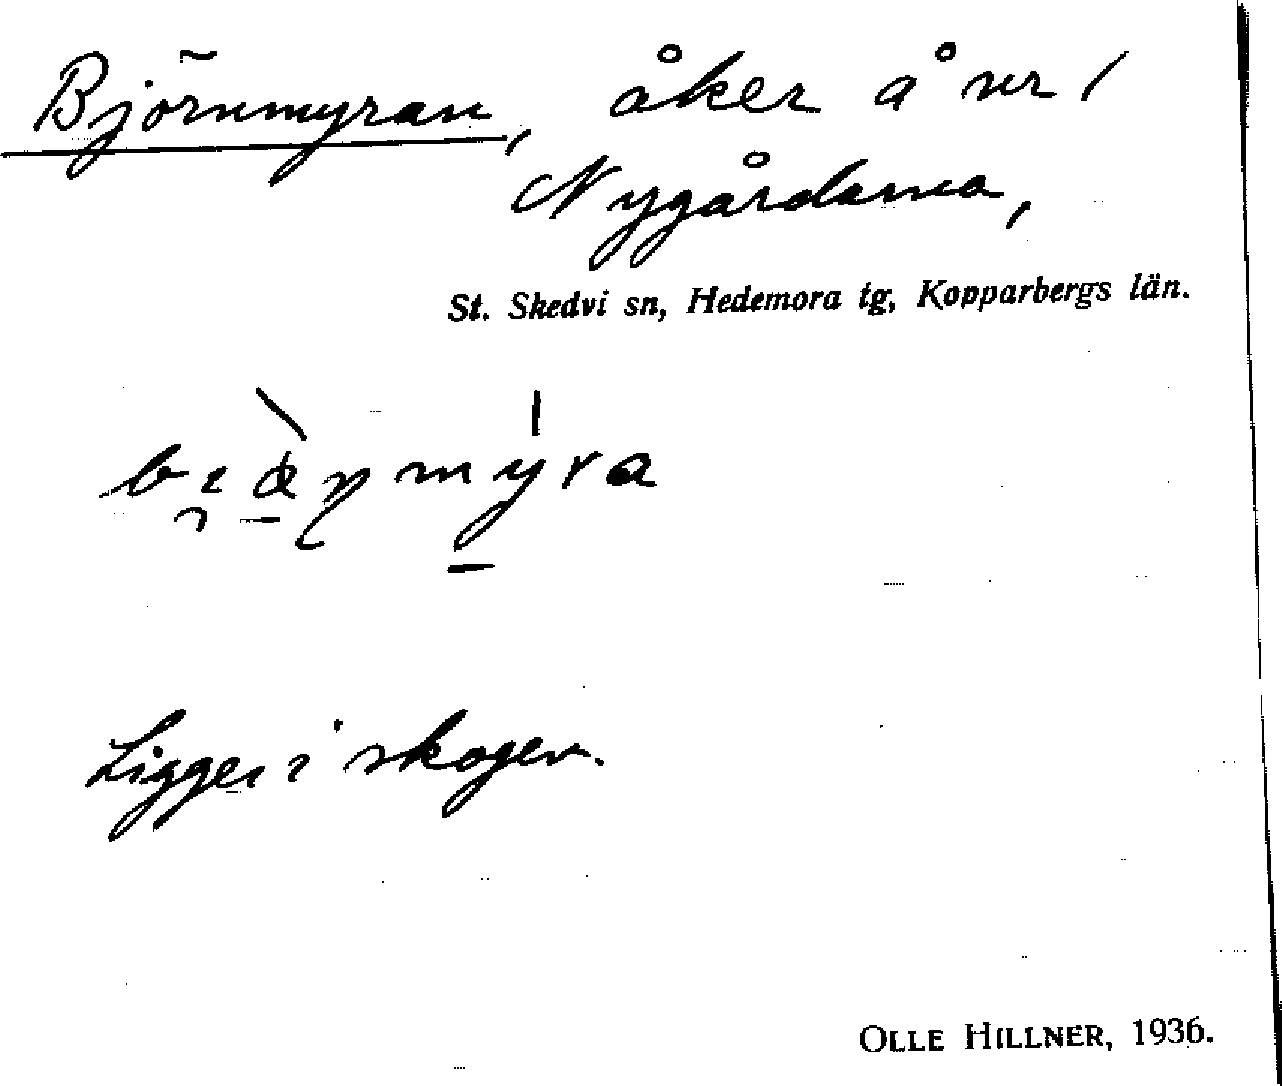 Björnmyran, åker å nr 1
Nygårdarna,
St. Skedvi sn, Hedemora tg, Kopparbergs län.
Ligger i skogen.
OLLE HILLNER, 1936.